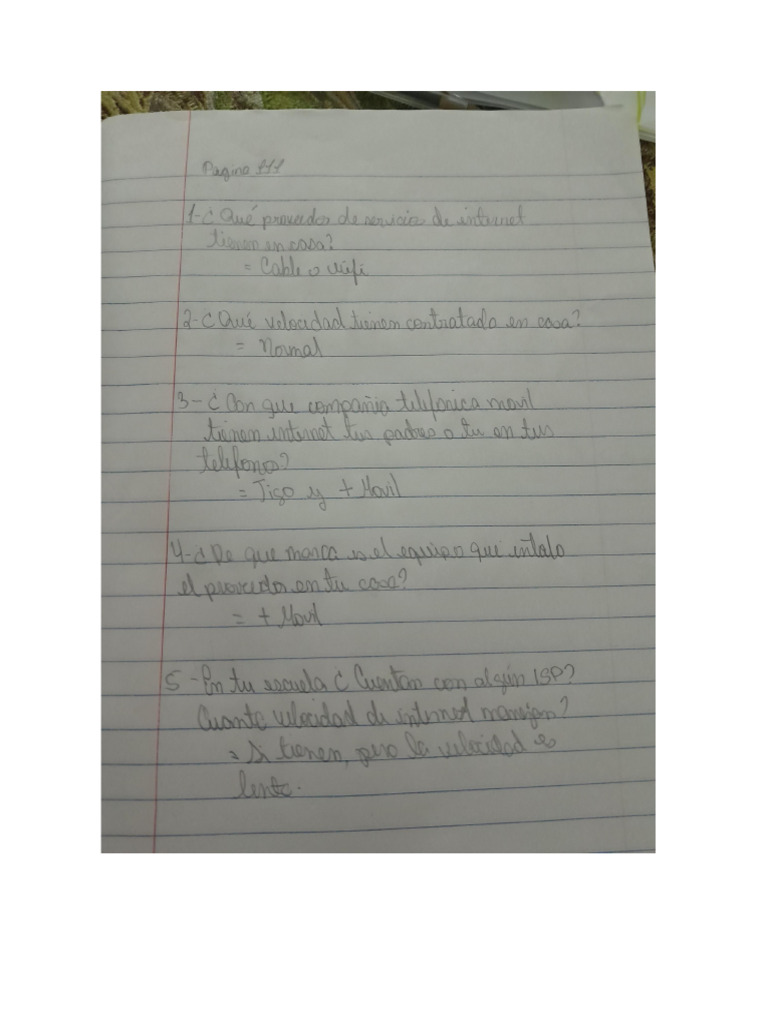 Pagina 111
1-¿Qué proveedor de servicio de internet
tienen en casa?
= Cable o wifi
2-¿Qué velocidad tienen contratado en casa?
= Normal
3-¿Con que compañia telefonica movil
tienen internet tus padres o tu en tus
telefonos?
= Tigo y + Movil
4-¿De que marca es el equipo que intalo
el proveedor en tu casa?
= + Movil
5-En tu escuela ¿Cuentan con algún ISP?
Cuanta velocidad de internet manejan?
= Si tienen, pero la velocidad es
lenta.